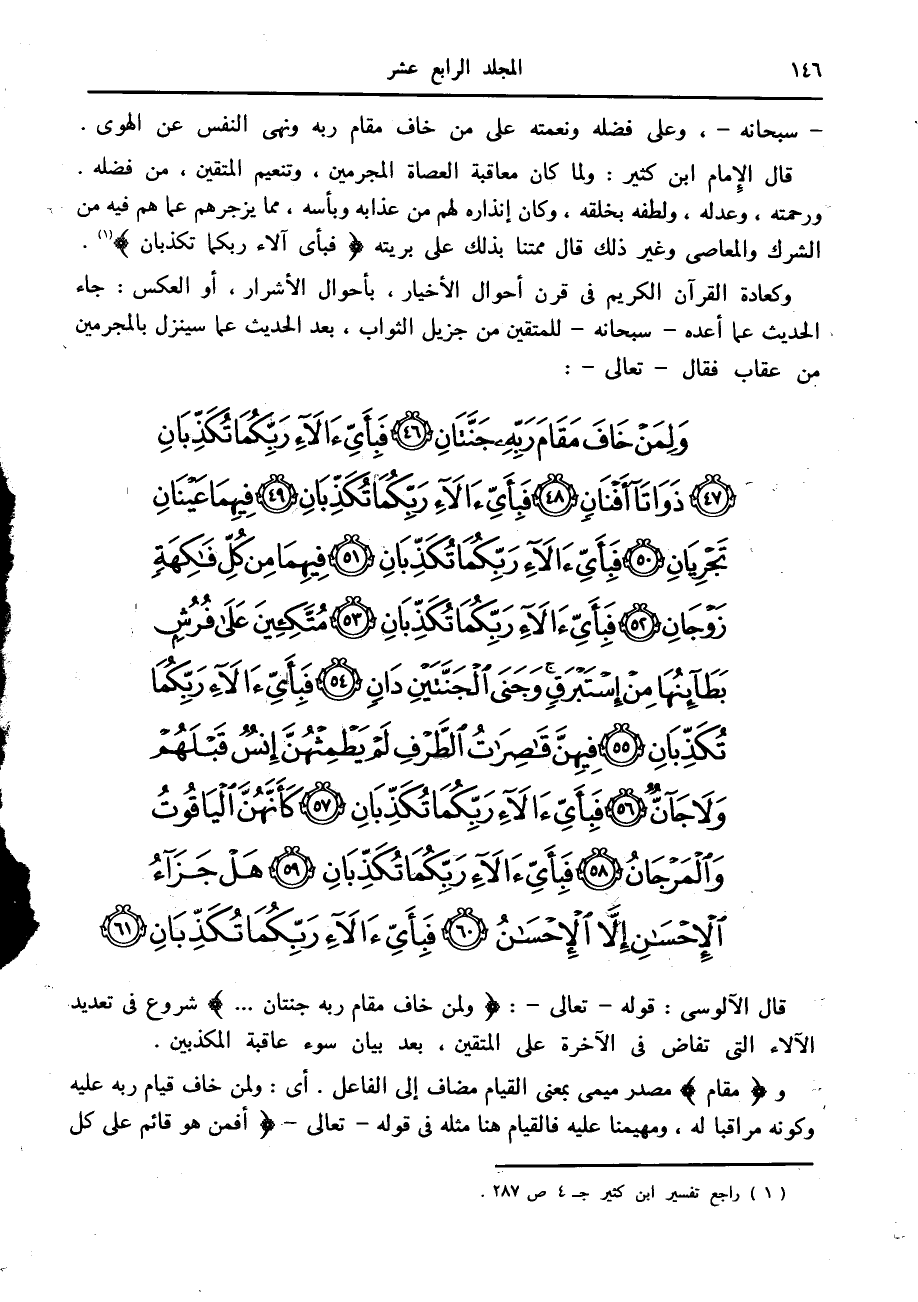 ١٤٦ المجلد الرابع عشر
– سبحانه – ، وعلى فضله ونعمته على من خاف مقام ربه ونهى النفس عن الهوى .
قال الإمام ابن كثير : ولما كان معاقبة العصاة المجرمين ، وتنعيم المتقين ، من فضله .
ورحمته ، وعدله ، ولطفه بخلقه ، وكان إنذاره لهم من عذابه وبأسه ، مما يزجرهم عما هم فيه من
الشرك والمعاصى وغير ذلك قال ممتنا بذلك على بريته ﴿ فبأى آلاء ربكما تكذبان ﴾(١) .
وكعادة القرآن الكريم فى قرن أحوال الأخيار ، بأحوال الأشرار ، أو العكس : جاء
الحديث عما أعده – سبحانه – للمتقين من جزيل الثواب ، بعد الحديث عما سينزل بالمجرمين
من عقاب فقال – تعالى – :
وَلِمَنْ خَافَ مَقَامَ رَبِّهِۦ جَنَّتَانِ ٤٦ فَبِأَيِّ ءَالَآءِ رَبِّكُمَا تُكَذِّبَانِ
٤٧ ذَوَاتَآ أَفْنَانٍ ٤٨ فَبِأَيِّ ءَالَآءِ رَبِّكُمَا تُكَذِّبَانِ ٤٩ فِيهِمَا عَيْنَانِ
تَجْرِيَانِ ٥٠ فَبِأَيِّ ءَالَآءِ رَبِّكُمَا تُكَذِّبَانِ ٥١ فِيهِمَا مِن كُلِّ فَٰكِهَةٍ
زَوْجَانِ ٥٢ فَبِأَيِّ ءَالَآءِ رَبِّكُمَا تُكَذِّبَانِ ٥٣ مُتَّكِـِٔينَ عَلَىٰ فُرُشٍۭ
بَطَآئِنُهَا مِنْ إِسْتَبْرَقٍۚ وَجَنَى ٱلْجَنَّتَيْنِ دَانٍ ٥٤ فَبِأَيِّ ءَالَآءِ رَبِّكُمَا
تُكَذِّبَانِ ٥٥ فِيهِنَّ قَٰصِرَٰتُ ٱلطَّرْفِ لَمْ يَطْمِثْهُنَّ إِنسٌ قَبْلَهُمْ
وَلَا جَآنٌّ ٥٦ فَبِأَيِّ ءَالَآءِ رَبِّكُمَا تُكَذِّبَانِ ٥٧ كَأَنَّهُنَّ ٱلْيَاقُوتُ
وَٱلْمَرْجَانُ ٥٨ فَبِأَيِّ ءَالَآءِ رَبِّكُمَا تُكَذِّبَانِ ٥٩ هَلْ جَزَآءُ
ٱلْإِحْسَٰنِ إِلَّا ٱلْإِحْسَٰنُ ٦٠ فَبِأَيِّ ءَالَآءِ رَبِّكُمَا تُكَذِّبَانِ ٦١
قال الآلوسى : قوله – تعالى – : ﴿ ولمن خاف مقام ربه جنتان ... ﴾ شروع فى تعديد
الآلاء التى تفاض فى الآخرة على المتقين ، بعد بيان سوء عاقبة المكذبين .
و ﴿ مقام ﴾ مصدر ميمى بمعنى القيام مضاف إلى الفاعل . أى : ولمن خاف قيام ربه عليه
وكونه مراقبا له ، ومهيمنا عليه فالقيام هنا مثله فى قوله – تعالى – ﴿ أفمن هو قائم على كل
( ١ ) راجع تفسير ابن كثير جـ ٤ ص ٢٨٧ .